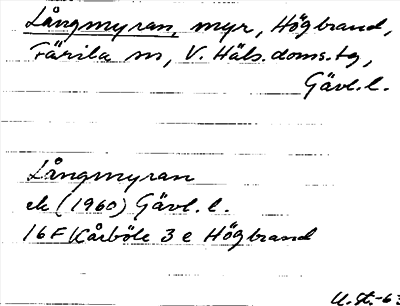 Långmyran, myr, Högbrand,
Färila sn, V. Häls. doms.tg,
Gävl. l.
Långmyran
ek (1960) Gävl. l.
16F Kårböle 3 e Högbrand
U.St.-63